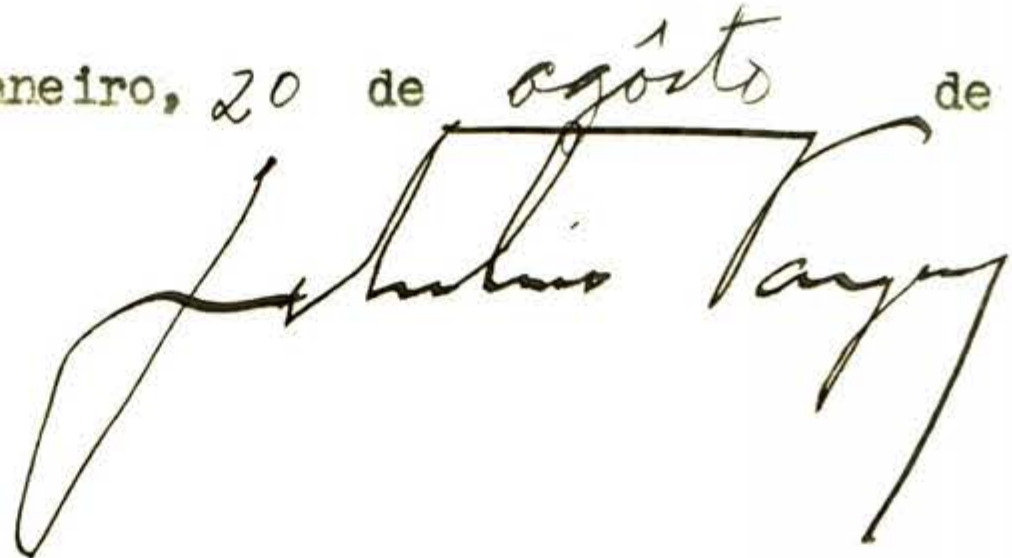 aneiro, 20 de agôsto de
Getulio Vargas